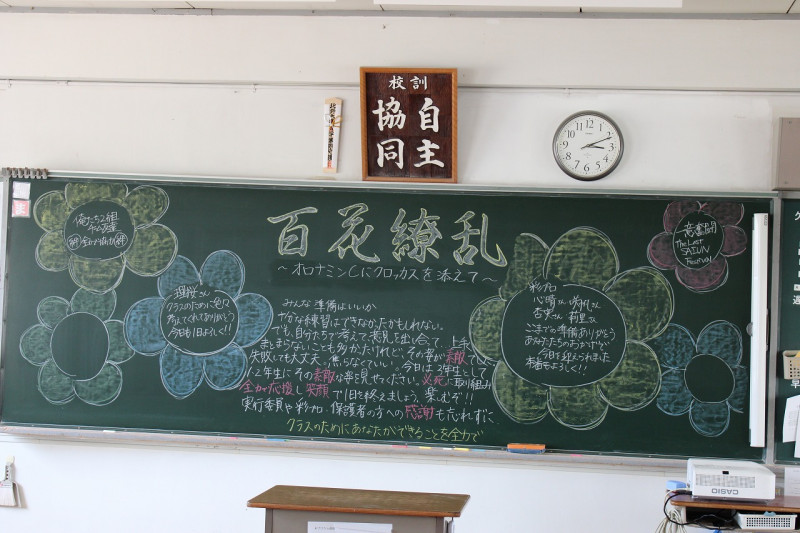 校訓
自主
協同
百花繚乱
～オロナミンCにクロッカスを添えて～
俺たち2組
璃桜さん
クラスのために色々
考えてくれてありがとう
今日も1日よろしく!!
みんな準備はいいか
十分な練習はできなかったかもしれない。
でも、自分たちで考えて意見を出し合って、上手く
まとまらないことも多かったけれど、その姿が素敵でした
失敗しても大丈夫。焦らなくていい。今日は3年生として
1、2年生にその素敵な姿を見せてください。必死に取り組み
全力で応援し笑顔で1日を終えましょう。楽しむぞ!!
実行委員や彩プロ、保護者の方への感謝も忘れずに、
クラスのためにあなたができることを全力で
彩プロ
心晴さん
杏実さん 莉里さん
ここまでの準備ありがとう
あなたたちのおかげで
今日を迎えられました
本番もよろしく!!
音楽部
The Last
SAIUN
Festival
CASIO